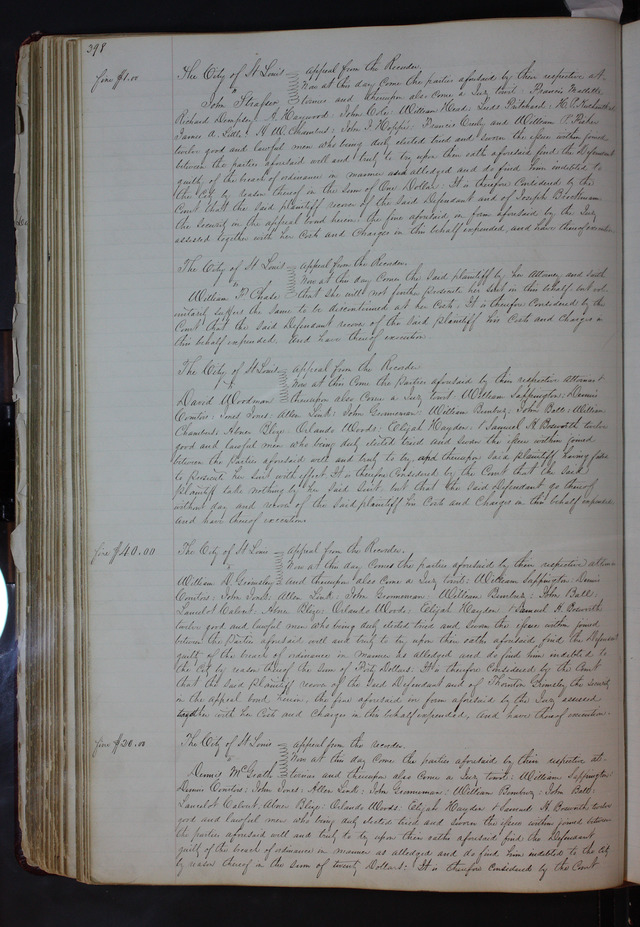 398
fine $1.00
The City of St Louis appeal from the Recorder
Now at this day Come the parties aforesaid by their respective At-
John Strafser tornies and thereupon also Come a Jury towit: Francis
Richard Dempsey: A. Haywood: John Cole: William Hurd:
James A. Little: H W Chambers: John J Hoppis: Francis and William P. Fisher
twelve good and lawful men who being duly elected tried and sworn the issue within joined
between the parties aforesaid well and truly to try upon their oaths aforesaid find the Defendant
guilty of the breach of ordinance in manner as alledged and do find him indebted to
the City by reason thereof in the Sum of One Dollar: It is therefore Considered by the
Court that the Said plaintiff recover of the Said Defendant and of Joseph
the Security in the appeal bond herein the fine aforesaid in form aforesaid by the Jury
assessed together with her Costs and Charges in this behalf expended, and have thereof execution
The City of St Louis appeal from the Recorder.
v Now at this day Comes the Said plaintiff by her Attorney and saith
William P. Chase that She will not further prosecute her suit in this behalf but vol-
untarily suffers the Same to be discontinued at her Costs: It is therefore Considered by the
Court that the Said Defendant recover of the Said plaintiff his Costs and Charges in
this behalf expended. and have thereof execution
The City of St Louis appeal from the Recorder
Now at this Come the parties aforesaid by their respective attornies &
David Woodman thereupon also Come a Jury towit: William Sappington: Dennis
Comtois: Jones: Allen Link: John Gonneman: William Bombury: John Ball: William
Chambers: Abner Blize: Orlando Woods: Elijah Hayden: & Samuel H. Bosworth twelve
good and lawful men who being duly elected tried and Sworn the issue within joined
between the parties aforesaid well and truly to try, and thereupon Said plaintiff having failed
to prosecute her Suit with effect. It is therefore Considered by the Court that the Said
plaintiff take nothing by her Said Suit but that the Said Defendant go thereof
without day and recover of the Said plaintiff his Costs and Charges in this behalf expended
and have thereof execution
fine $40.00
The City of St Louis appeal from the Recorder.
v Now at this day Comes the parties aforesaid by their respective attornies
William D. Grimsley and thereupon also Come a Jury towit: William Sappington Dennis
Comtois: John Jones: Allen Link: John Gonneman: William Bombury: John Ball:
Lancelot Calvert: Abner Blize: Orlando Woods: Elijah Hayden & Samuel H. Bosworth
twelve good and lawful men who being duly elected tried and Sworn the issue within joined
between the parties aforesaid well and truly to try upon their oaths aforesaid find the Defendant
guilty of the breach of ordinance in manner as alledged and do find him indebted to
the City by reason thereof the Sum of Dollars: It is therefore Considered by the Court
that the Said plaintiff recover of the Said Defendant and of Thornton Grimsley the Security
in the appeal bond herein, the fine aforesaid in form aforesaid by the Jury assessed
together with her Costs and Charges in this behalf expended, and have thereof execution.
fine $20.00
The City of St Louis appeal from the recorder.
v Now at this day Come the parties aforesaid by their respective at-
Dennis McGrath tornies and thereupon also Come a Jury towit: William Sappington
Dennis Comtois: John Jones: Allen Link: John Gonneman: William Bombury: John Ball:
Lancelot Calvert: Abner Blize: Orlando Woods: Elijah Hayden & Samuel H. Bosworth twelve
good and lawful men who being duly elected tried and Sworn the issue within joined between
the parties aforesaid well and truly to try upon their oaths aforesaid find the Defendant
guilty of the breach of ordinance in manner as alledged and do find him indebted to the City
by reason thereof in the Sum of twenty Dollars: It is therefore Considered by the Court